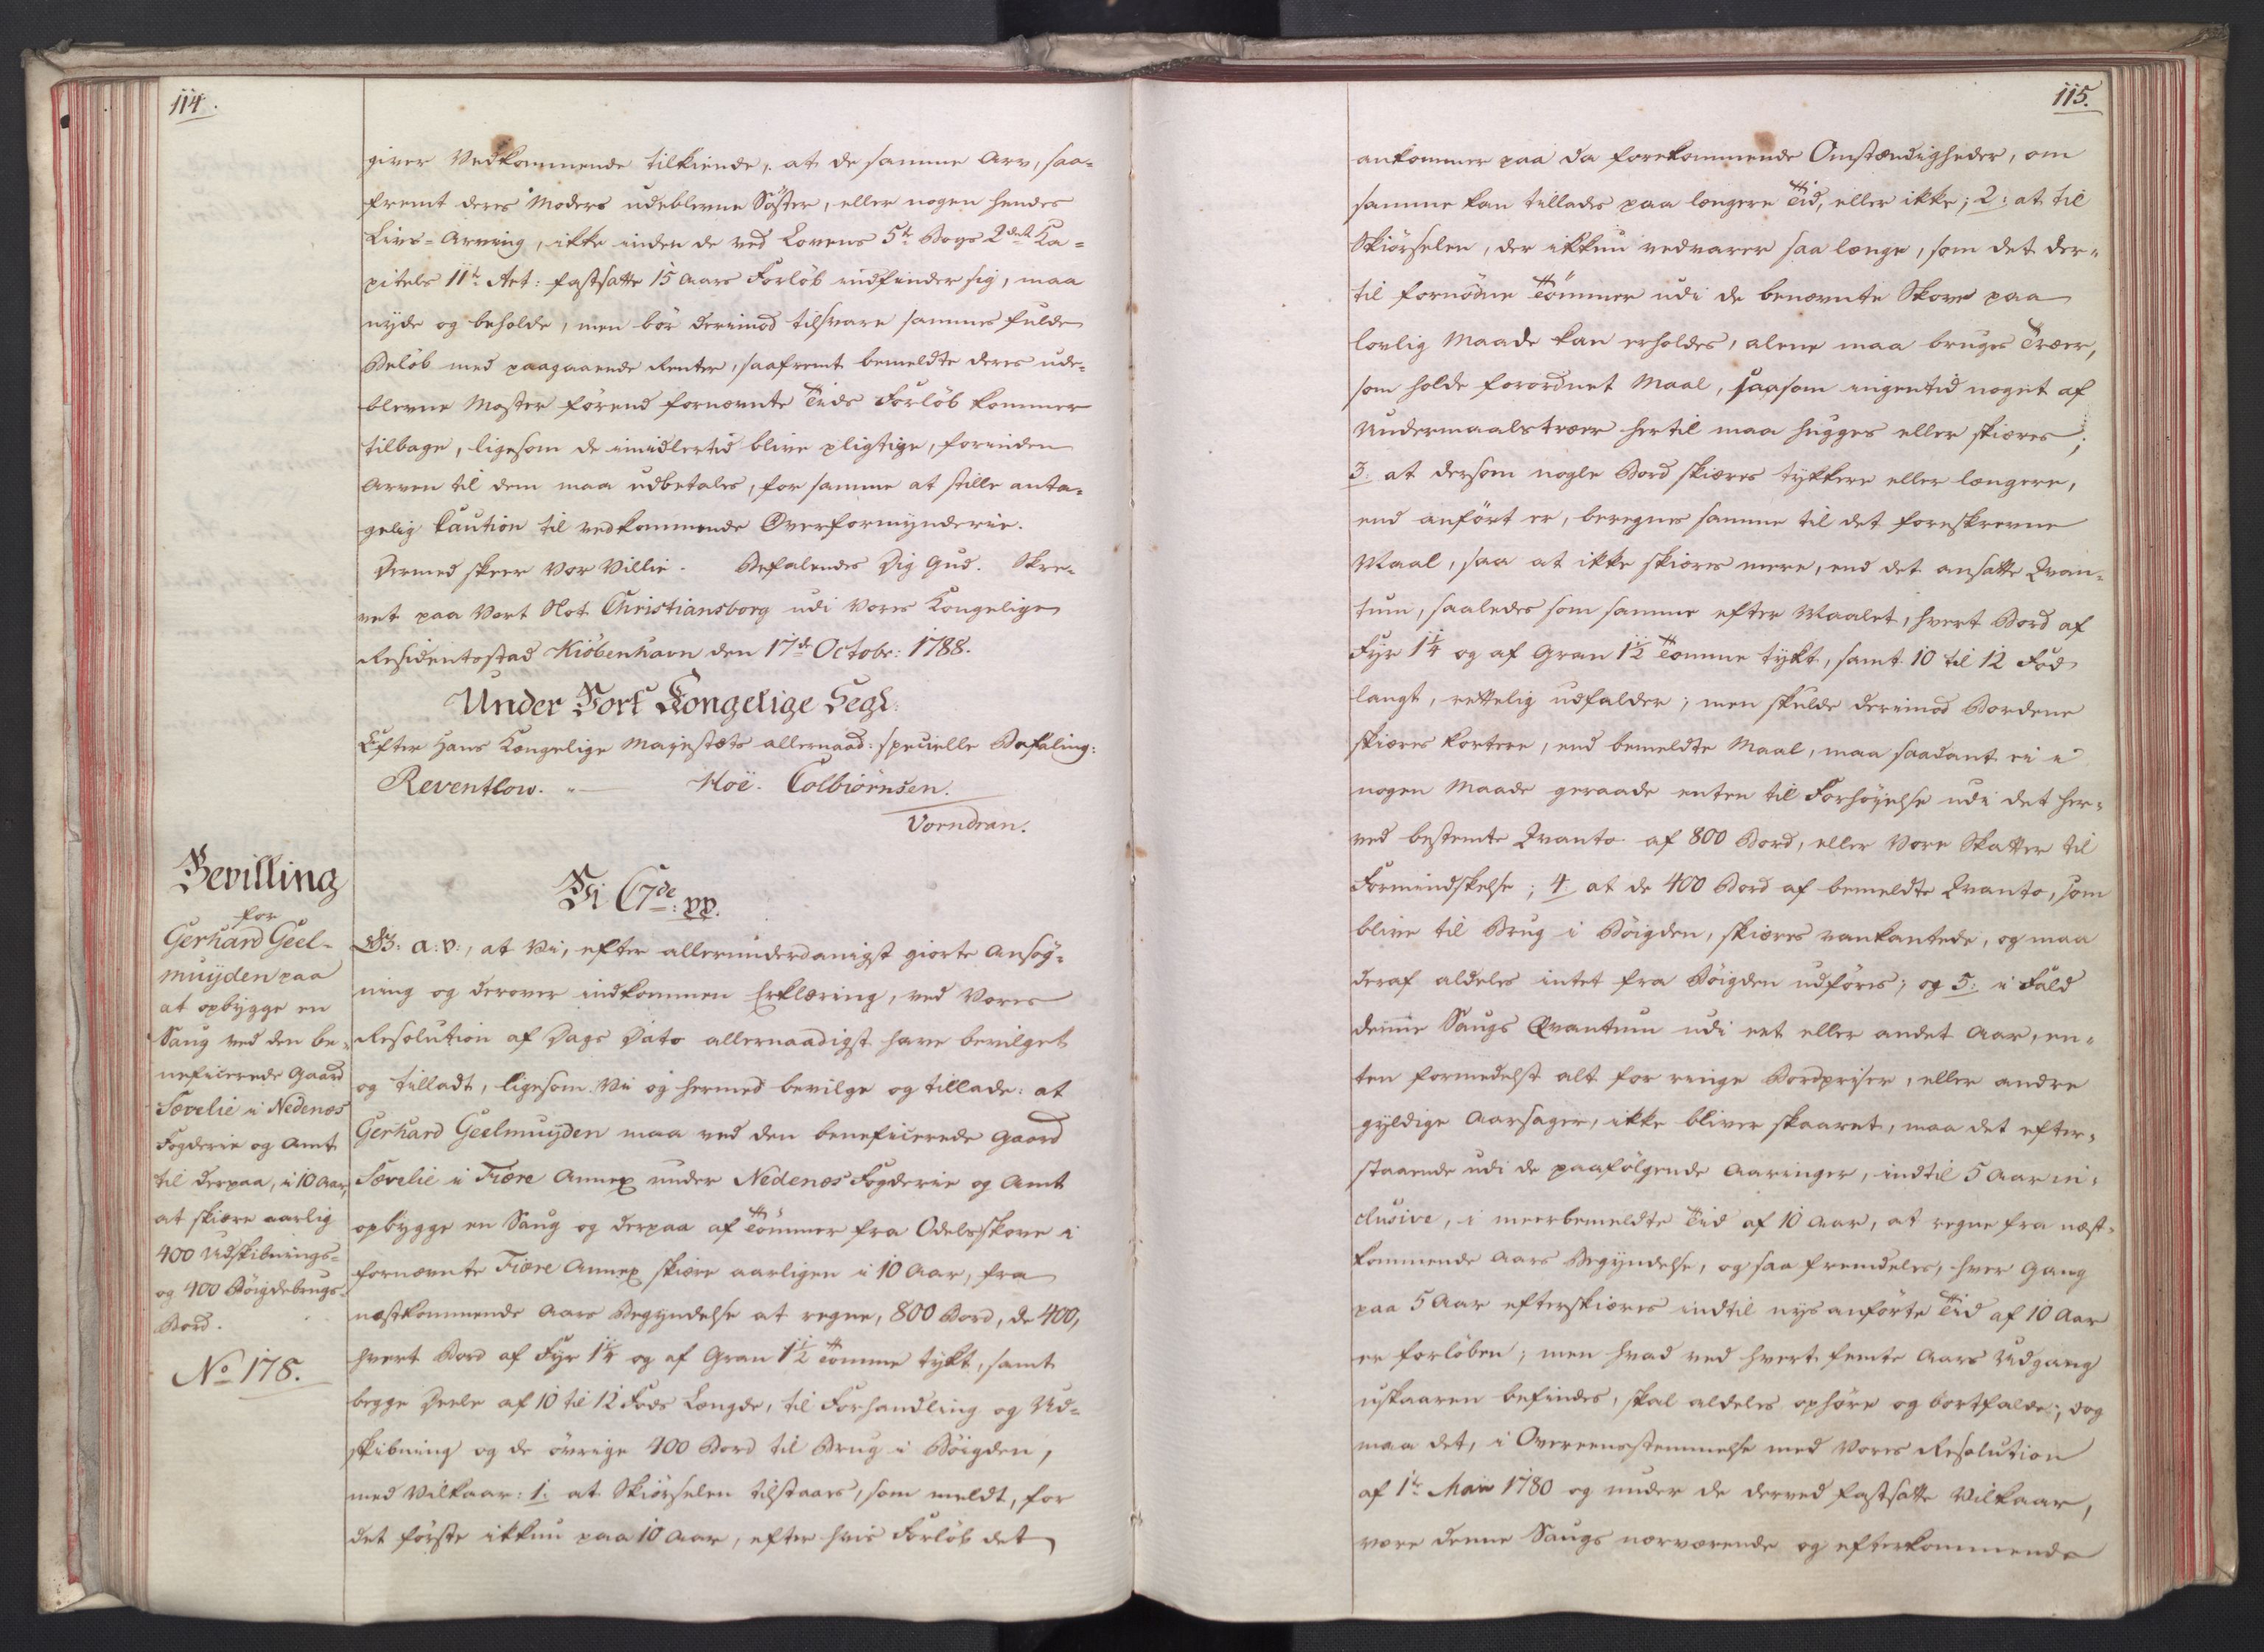 114.
giver Vedkommende tilkiende, at de samme Arv, saa-
fremt deres Moders udeblevne Söster, eller nogen hendes
Livs-Arving, ikke inden de ved Lovens 5te Bogs 2det Ka-
pitels 11te Art: fastsatte 15 Aars Forlöb indfinder sig, maa
nyde og beholde, men bör derimod tilsvare sammes fulde
Belöb med paagaaende Renter, saafremt bemeldte deres ude-
blevne Moster förend fornævnte Tids Forlöb kommer
tilbage, ligesom de imidlertid blive pligtige, forinden
Arven til dem maa udbetales, for samme at stille anta-
gelig Caution til vedkommende Overformynderie.
Dermed skeer Vor Villie. Befalendes Dig Gud. Skre-
vet paa Vort Slot Christiansborg udi Vores Kongelige
Residentsstad Kiöbenhavn den 17de Octobr: 1788.
Under Vort Kongelige Segl.
Efter Hans Kongelige Majestæts allernaad: specielle Befaling:
Reventlow. Moë. Colbiörnsen.
Vorndran.
Bevilling
for
Gerhard Geel-
muijden paa
at opbygge en
Saug ved den be-
neficerede Gaard
Sævelie i Nedenæs
Fogderie og Amt
til derpaa, i 10 Aar,
at skiære aarlig
400 Udskibnings-
og 400 Böigdebrugs-
Bord.
No 178.
Vi C7de: pp.
G: A: V:, at Vi, efter allerunderdanigst giorte Ansög-
ning og derover indkommen Erklæring, ved Vores
Resolution af Dags Dato allernaadigst have bevilget
og tilladt, ligesom Vi og hermed bevilge og tillade: at
Gerhard Geelmuijden maa ved den beneficerede Gaard
Sævelie i Fiære Annex under Nedenæs Fogderie og Amt
opbygge en Saug og derpaa af Tömmer fra Odelsskove i
fornævnte Fiære Annex skiære aarligen i 10 Aar, fra
næstkommende Aars Begyndelse at regne, 800 Bord, de 400,
hvert Bord af Fyr 1¼ og af Gran 1½ Tomme tykt, samt
begge Deele af 10 til 12 Fods Længde, til Forhandling og Ud-
skibning og de övrige 400 Bord til Brug i Böigden,
med Vilkaar: 1. at Skiörselen tilstaaes, som meldt, for
det förste ikkun paa 10 Aar, efter hvis Forlöb det
115.
ankommer paa da forekommende Omstændigheder, om
samme kan tillades paa længere Tid, eller ikke; 2: at til
Skiörselen, der ikkun vedvarer saa længe, som det der-
til fornödne Tömmer udi de benævnte Skove paa
lovlig Maade kan erholdes, alene maa bruges Træer,
som holde forordnet Maal, saasom ingentid noget af
Undermaalstræer hertil maa hugges eller skiæres;
3. at dersom nogle Bord skiæres tykkere eller længere,
end anfört er, beregnes samme til det foreskrevne
Maal, saa at ikke skiæres mere, end det ansatte Qvan-
tum, saaledes som samme efter Maalet, hvert Bord af
Fyr 1¼ og af Gran 1½ Tomme tykt, samt 10 til 12 Fod
langt, rettelig udfalder; men skulde derimod Bordene
skiæres kortere, end bemeldte Maal, maa saadant ei i
nogen Maade geraade enten til Forhöyelse udi det her-
ved bestemte Qvanto af 800 Bord, eller Vore Skatter til
Formindskelse; 4. at de 400 Bord af bemeldte Qvanto, som
blive til Brug i Böigden, skiæres vankantede, og maa
deraf aldeles intet fra Böigden udföres; og 5: i Fald
denne Saugs Qvantum udi eet eller andet Aar, en-
ten formedelst alt for ringe Bordpriser, eller andre
gyldige Aarsager, ikke bliver skaaret, maa det efter-
staaende udi de paafölgende Aaringer, indtil 5 Aar in-
clusive, i meerbemeldte Tid af 10 Aar, at regne fra næst-
kommende Aars Begyndelse, og saa fremdeles, hver Gang
paa 5 Aar efterskiæres indtil nys anförte Tid af 10 Aar
er forlöben; men hvad ved hvert femte Aars Udgang
uskaaren befindes, skal aldeles ophöre og bortfalde; dog
maa det, i Overeensstemmelse med Vores Resolution
af 1te Maii 1780 og under de derved fastsatte Vilkaar,
være denne Saugs nærværende og efterkommende